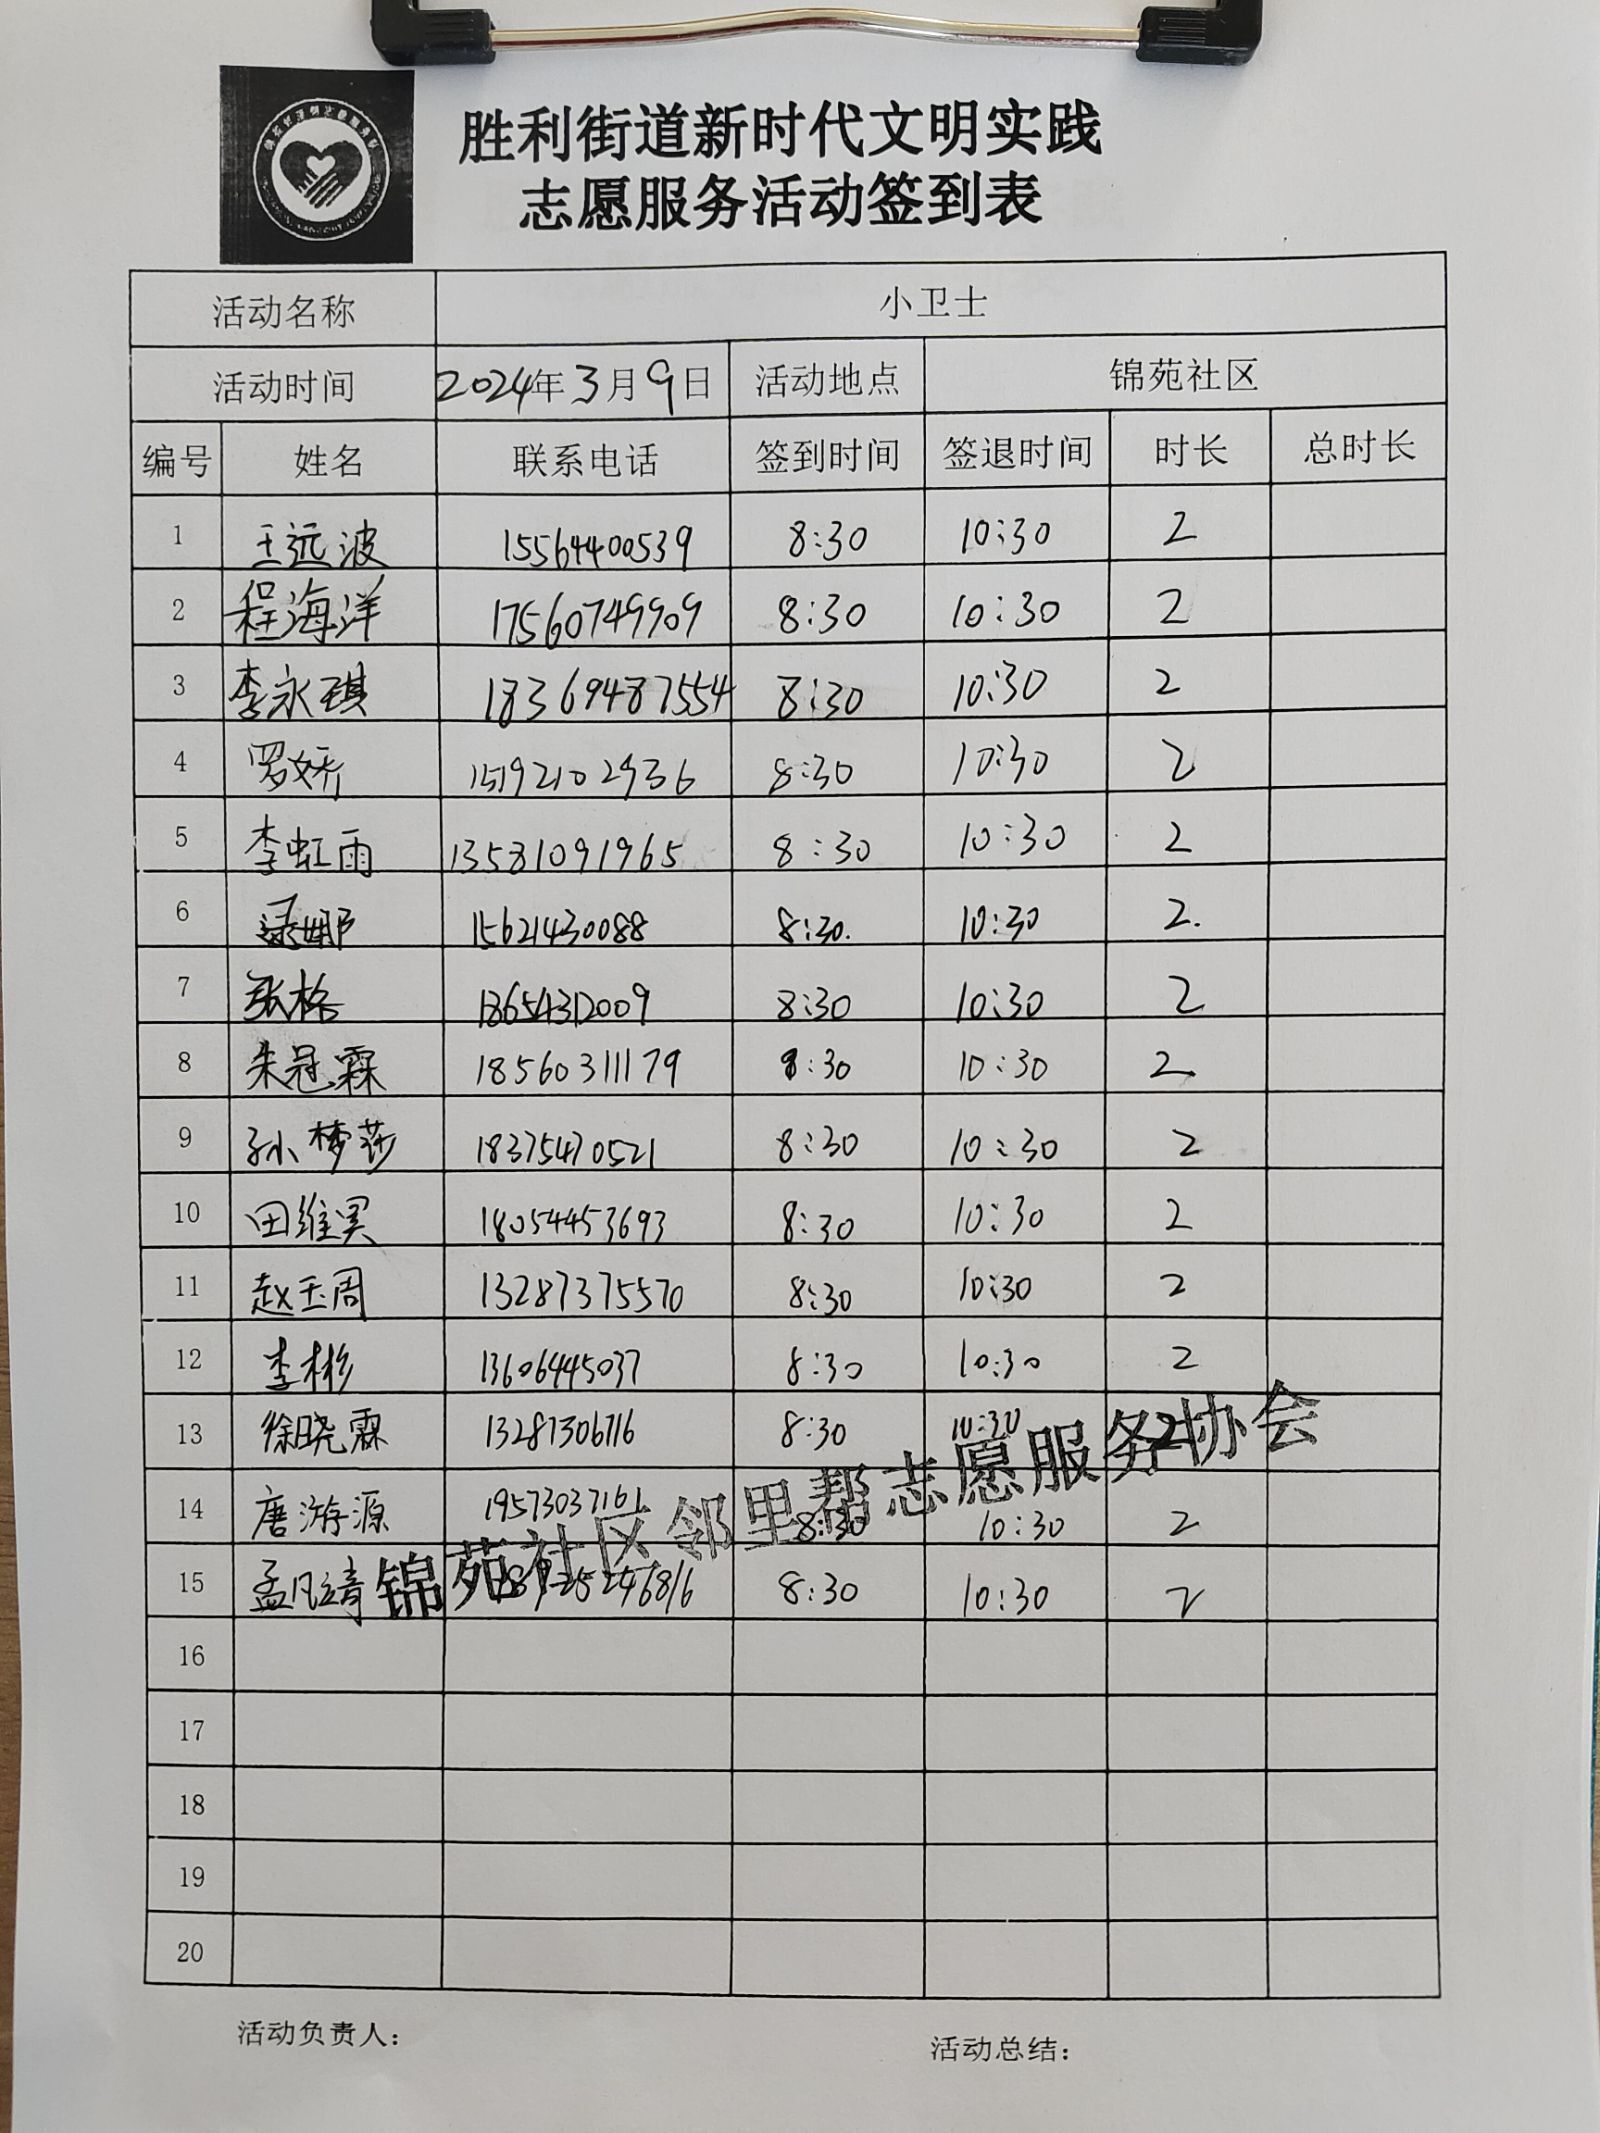 胜利街道新时代文明实践
志愿服务活动签到表
活动名称 小卫士
活动时间 2024年3月9日 活动地点 锦苑社区
编号 姓名 联系电话 签到时间 签退时间 时长 总时长
1 王远波 15564400539 8:30 10:30 2
2 程海洋 17560749909 8:30 10:30 2
3 李永琪 18369487554 8:30 10:30 2
4 罗娇 15192102936 8:30 10:30 2
5 李虹雨 13581091965 8:30 10:30 2
6 15621430088 8:30. 10:30 2.
7 张格 18654312009 8:30 10:30 2
8 朱冠霖 18560311179 8:30 10:30 2
9 孙梦莎 18375470521 8:30 10:30 2
10 田维 18054453693 8:30 10:30 2
11 赵玉周 13287375570 8:30 10:30 2
12 李彬 13606445037 8:30 10:30 2
13 徐晓霖 13287306716 8:30 10:30 2
14 唐游源 19573037161 8:30 10:30 2
15 孟凡靖 8:30 10:30 2
锦苑社区邻里帮志愿服务协会
16
17
18
19
20
活动负责人: 活动总结: